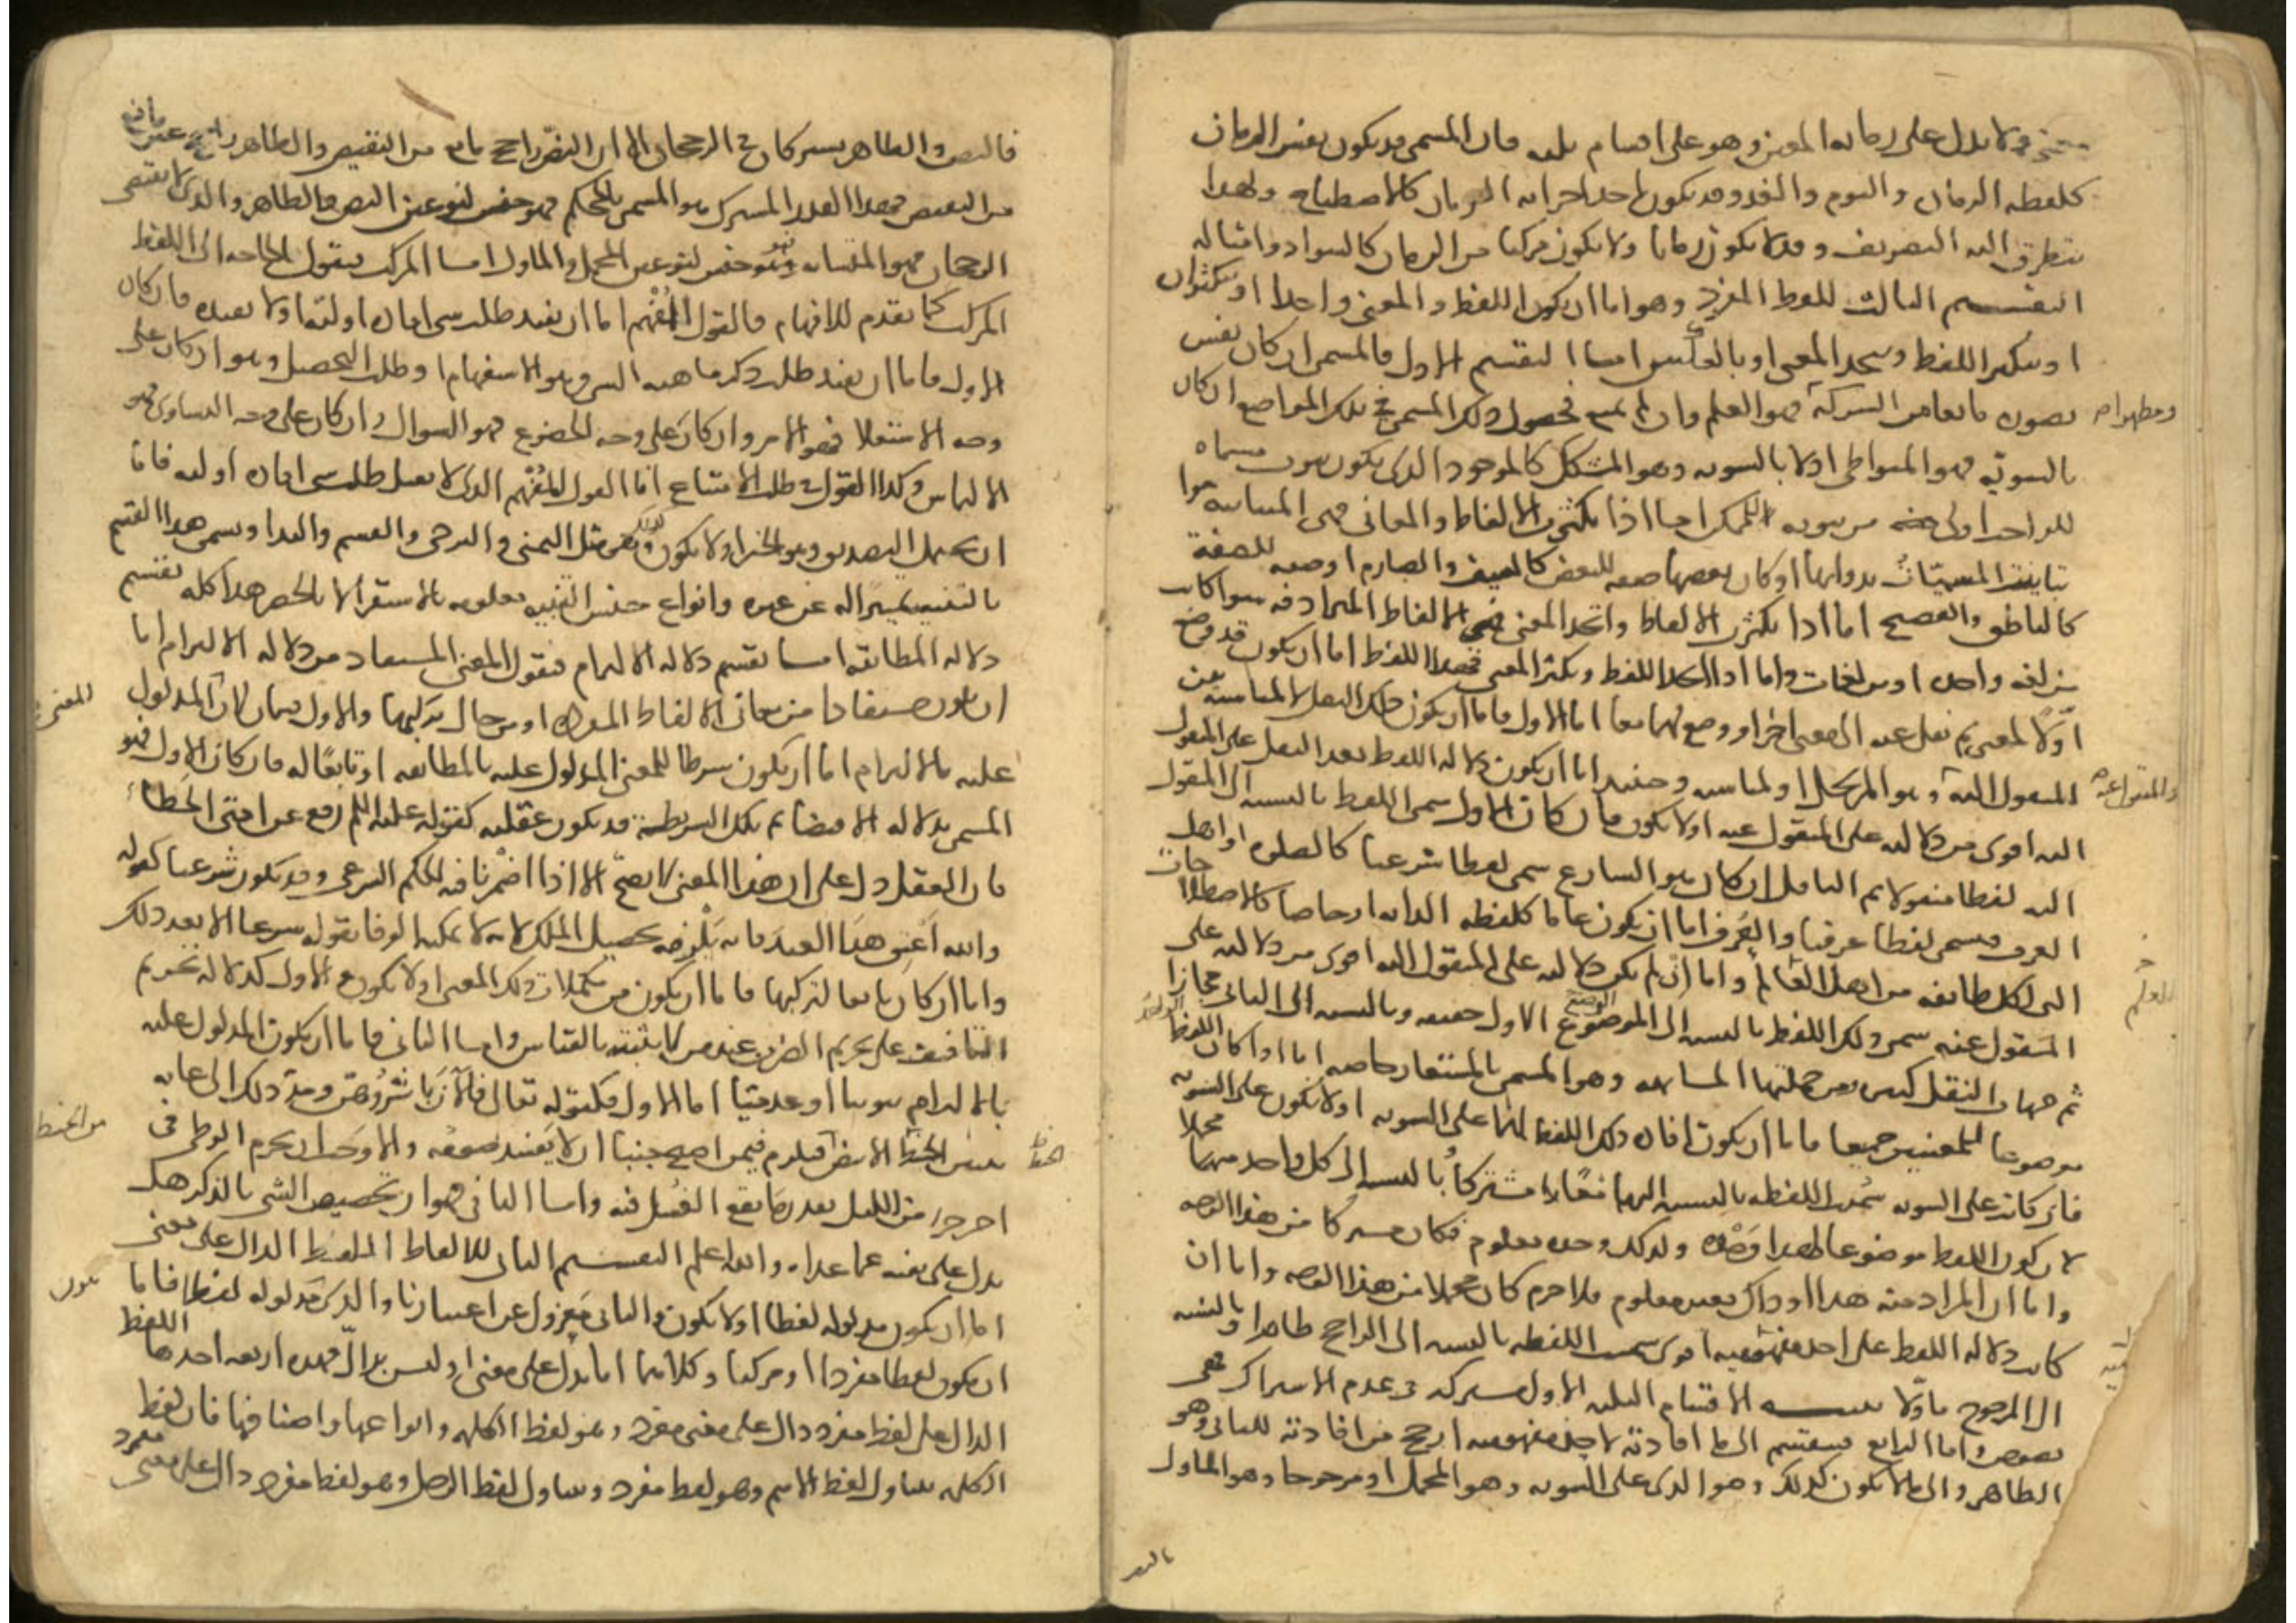 معنى ولا يدل على زمانه المعين وهو على اقسام ثلثه فان المسمى قد يكون نفس الزمان
كلفظه الزمان واليوم والغد وقد يكون احد اجزائه الزمان كالاصطباح ولهذا
يتطرق اليه التصريف وقد لا يكون زمانا ولا يكون مركبا من الزمان كالسواد وامثاله
التقسيم الثالث للفظ المفرد وهو اما ان يكون اللفظ والمعنى واحدا او يتكثران
او يتكثر اللفظ ويتحد المعنى او بالعكس اما التقسيم الاول فالمسمى ان كان نفس
تصوره مانعا من الشركة فهو العلم وان لم يمنع فحصول ذلك المسمى في تلك المواضع ان كان
بالسوية فهو المتواطى اولا بالسويه وهو المشكك كالموجود الذى يكون ثبوت مسماه
للواجب اولى من ثبوته للممكن اما اذا تكثرت الالفاظ والمعانى فهى المتباينه سوا
تباينت المسميات بذواتها او كان بعضها صفه للبعض كالسيف والصارم او صفه للصفة
كالناطق والفصيح اما اذا تكثرت الالفاظ واتحد المعنى فهى الالفاظ المترادفه سوا كانت
من لغه واحده او من لغات واما اذا اتحد اللفظ وتكثر المعنى فهذا اللفظ اما ان يكون قد وضع
اولا لمعنى ثم نقل عنه الى معنى اخر او وضع لهما معا اما الاول فاما ان يكون ذلك النقل لا لمناسبة بين
المنقول اليه وهو المرتجل او لمناسبه وحينئذ اما ان يكون دلاله اللفظ بعد النقل على المنقول
اليه اقوى من دلالته على المنقول عنه اولا يكون فان كان الاول سمى اللفظ بالنسبه الى المنقول
اليه لفظا منقولا ثم الناقل ان كان هو الشارع سمى لفظا شرعيا كالصلوه او اهل
العرف فيسمى لفظا عرفيا والعرف اما ان يكون عاما كلفظه الدابه او خاصا كالاصطلاحات
التى لكل طائفه من اهل العالم واما ان لم يكن دلالته على المنقول اليه اقوى من دلالته على
المنقول عنه سمى ذلك اللفظ بالنسبه الى الموضوع الاول حقيقه وبالنسبه الى الثانى مجازا
ثم جهات النقل كثيره من جملتها المشابهه وهو المسمى بالمستعار خاصه اما اذا كان اللفظ
موضوعا للمعنيين جميعا فاما ان يكون افاده ذلك اللفظ لهما على السويه اولا يكون على السويه
فان كانت على السويه سميت اللفظه بالنسبه اليهما معا مشتركا وبالنسبه الى كل واحد منهما مجملا
لان كون اللفظ موضوعا لهذا وحده ولذلك وحده معلوم فكان مشتركا من هذا الوجه
واما ان المراد منه هذا او ذاك بعينه غير معلوم فلا جرم كان مجملا من هذا الوجه واما ان
كانت دلاله اللفظ على احد مفهوميه اقوى سميت اللفظه بالنسبه الى الراجح ظاهرا وبالنسبه
الى المرجوح ماولا تنبيه الاقسام الثلثه الاول مشتركه فى عدم الاشتراك فهى
نصوص واما الرابع فينقسم الى ما افادته لاحد مفهوميه ارجح من افادته للثانى وهو
الظاهر والى ما لا يكون كذلك وهو الذى على السويه وهو المجمل او مرجوحا وهو الماول
فالنص والظاهر يشتركان فى الرجحان الا ان النص راجح مانع من النقيض والظاهر راجح غير مانع
من النقيض فهذا القدر المشترك هو المسمى بالمحكم فهو جنس لنوعين النص والظاهر والذى لا يقتضى
الرجحان فهو المتشابه وهو جنس لنوعين المجمل والماول اما المركب فيقول الحاجه الى اللفظ
المركب كما تقدم للافهام فالقول المفهم اما ان يفيد طلب شى افاده اوليه اولا يفيده فان كان
الاول فاما ان يفيد طلب ذكر ماهيه الشى وهو الاستفهام او طلب التحصيل وهو ان كان على
وجه الاستعلا فهو الامر وان كان على وجه الخضوع فهو السوال وان كان على وجه التساوى فهو
الالتماس وكذا القول فى طلب الامتناع اما القول المفهم الذى لا يفيد طلب شى افاده اوليه فاما
ان يحتمل التصديق وهو الخبر اولا يكون كذلك وهو مثل التمنى والترجى والقسم والندا ويسمى هذا القسم
بالتنبيه تمييزا له عن غيره وانواع جنس التنبيه معلومه بالاستقرا لا بالحصر هذا كله تقسيم
دلاله المطابقه اما تقسيم دلاله الالتزام فنقول المعنى المستفاد من دلاله الالتزام اما
ان يكون مستفادا من معانى الالفاظ المفرده او من حال تركيبها والاول قسمان لان المدلول
عليه بالالتزام اما ان يكون شرطا للمعنى المدلول عليه بالمطابقه او تابعا له فان كان الاول فهو
المسمى بدلاله الاقتضا ثم تلك الشرطية قد يكون عقليه كقوله عليه السلم رفع عن امتى الخطا
فان العقل دل على ان هذا المعنى لا يصح الا اذا اضمرنا فيه الحكم الشرعى وقد يكون شرعيا كقوله
والله اعتق هذا العبد فانه يلزمه تحصيل الملك لانه لا يمكنه الوفا بقوله شرعا الا بعد ذلك
واما ان كان تابعا لتركيبها فاما ان يكون من مكملات ذلك المعنى اولا يكون فالاول كدلاله تحريم
التافيف على تحريم الضرب عند من لا يثبته بالقياس واما الثانى فاما ان يكون المدلول عليه
بالالتزام ثبوتيا او عدميا اما الاول فكقوله تعالى فالآن باشروهن ومد ذلك الى غايه
تبين الخيط الابيض فيلزم فيمن اصبح جنبا ان لا يفسد صومه والا وجب ان يحرم الوطى فى
اخر جزء من الليل بقدر ما يقع الغسل فيه واما الثانى فهو ان تخصيص الشى بالذكر هل
يدل على نفيه عما عداه والله اعلم التقسيم الثانى للالفاظ اللفظ الدال على معنى
اما ان يكون مدلوله لفظا اولا يكون والثانى معزول عن اعتبارنا والذى مدلوله لفظا فاما
ان يكون لفظا مفردا او مركبا وكلاهما اما يدل على معنى او ليس بدال فهذه اربعه احدها اللفظ
الدال على لفظ مفرد دال على معنى مفرد وهو لفظ الكلمه وانواعها واصنافها فان لفظ
الكلمه يتناول لفظ الاسم وهو لفظ مفرد ويتناول لفظ الرجل وهو لفظ مفرد دال على معنى مفرد